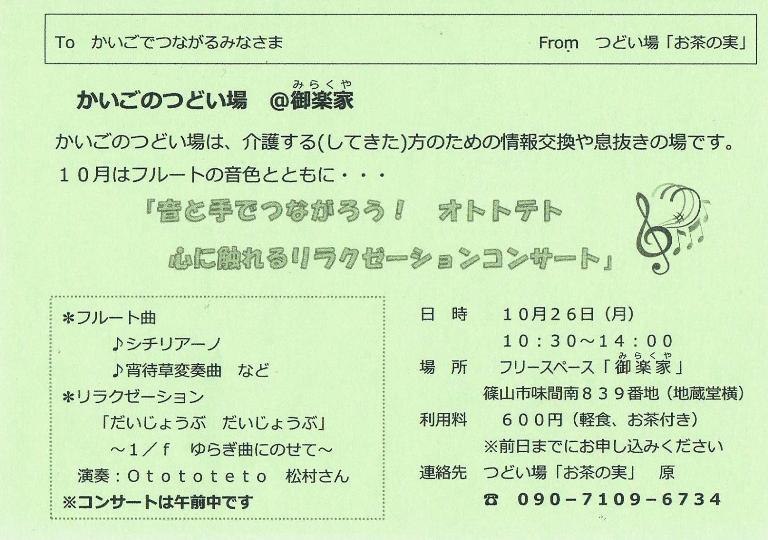 To　かいごでつながるみなさま　From　つどい場「お茶の実」
みらくや
かいごのつどい場　@御楽家
かいごのつどい場は、介護する(してきた)方のための情報交換や息抜きの場です。
１０月はフルートの音色とともに・・・
「音と手でつながろう！　オトトテト
心に触れるリラクゼーションコンサート」
＊フルート曲
♪シチリアーノ
♪宵待草変奏曲　など
＊リラクゼーション
「だいじょうぶ　だいじょうぶ」
～１／ｆ　ゆらぎ曲にのせて～
演奏：Ｏｔｏｔｏｔｅｔｏ　松村さん
※コンサートは午前中です
日　時　１０月２６日（月）
１０：３０～１４：００
みらくや
場　所　フリースペース「御楽家」
篠山市味間南８３９番地（地蔵堂横）
利用料　６００円（軽食、お茶付き）
※前日までにお申し込みください
連絡先　つどい場「お茶の実」　原
☎　０９０－７１０９－６７３４